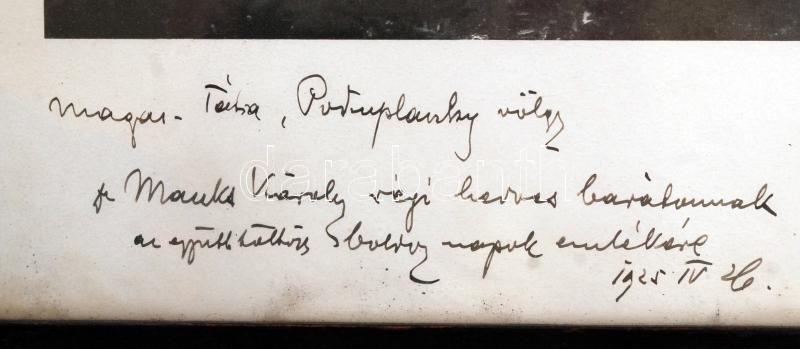 Magas-Tátra, Poduplaszky völgy
Mauks Károly régi kedves barátomnak
az együtt töltött boldog napok emlékére
1925 IV 26.
darabanth